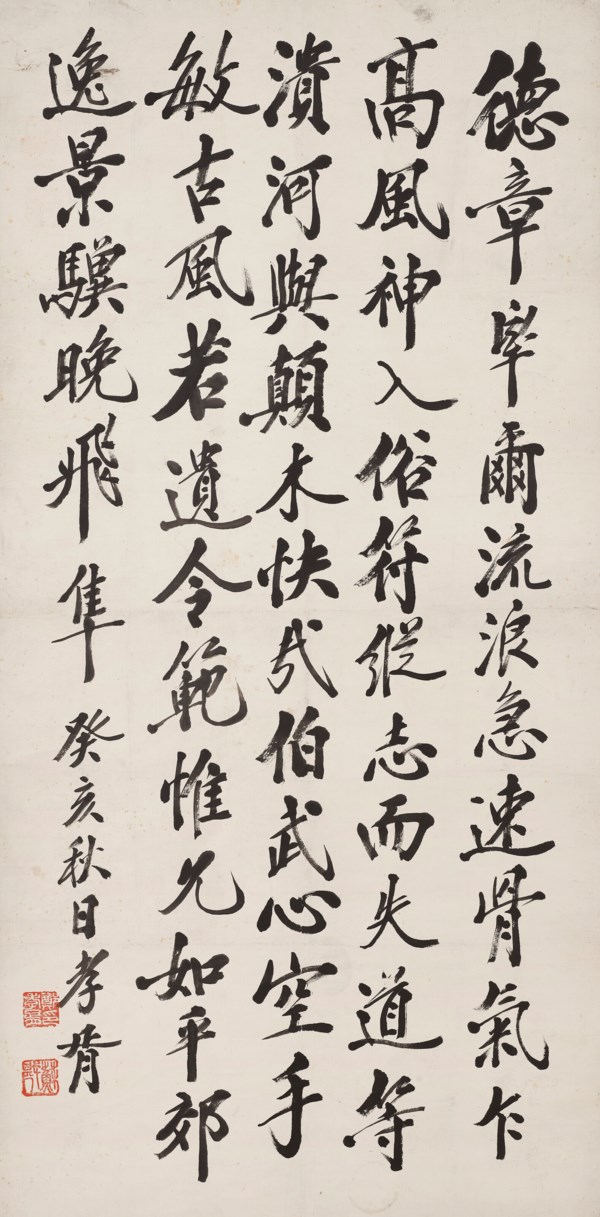 德章卓爾流浪急速骨氣乍
高風神入俗符縱志而失道等
潰河與顛木快哉伯武心空手
敏古風若遺令範惟允如平郊
逸景驥晚飛隼 癸亥秋日孝胥